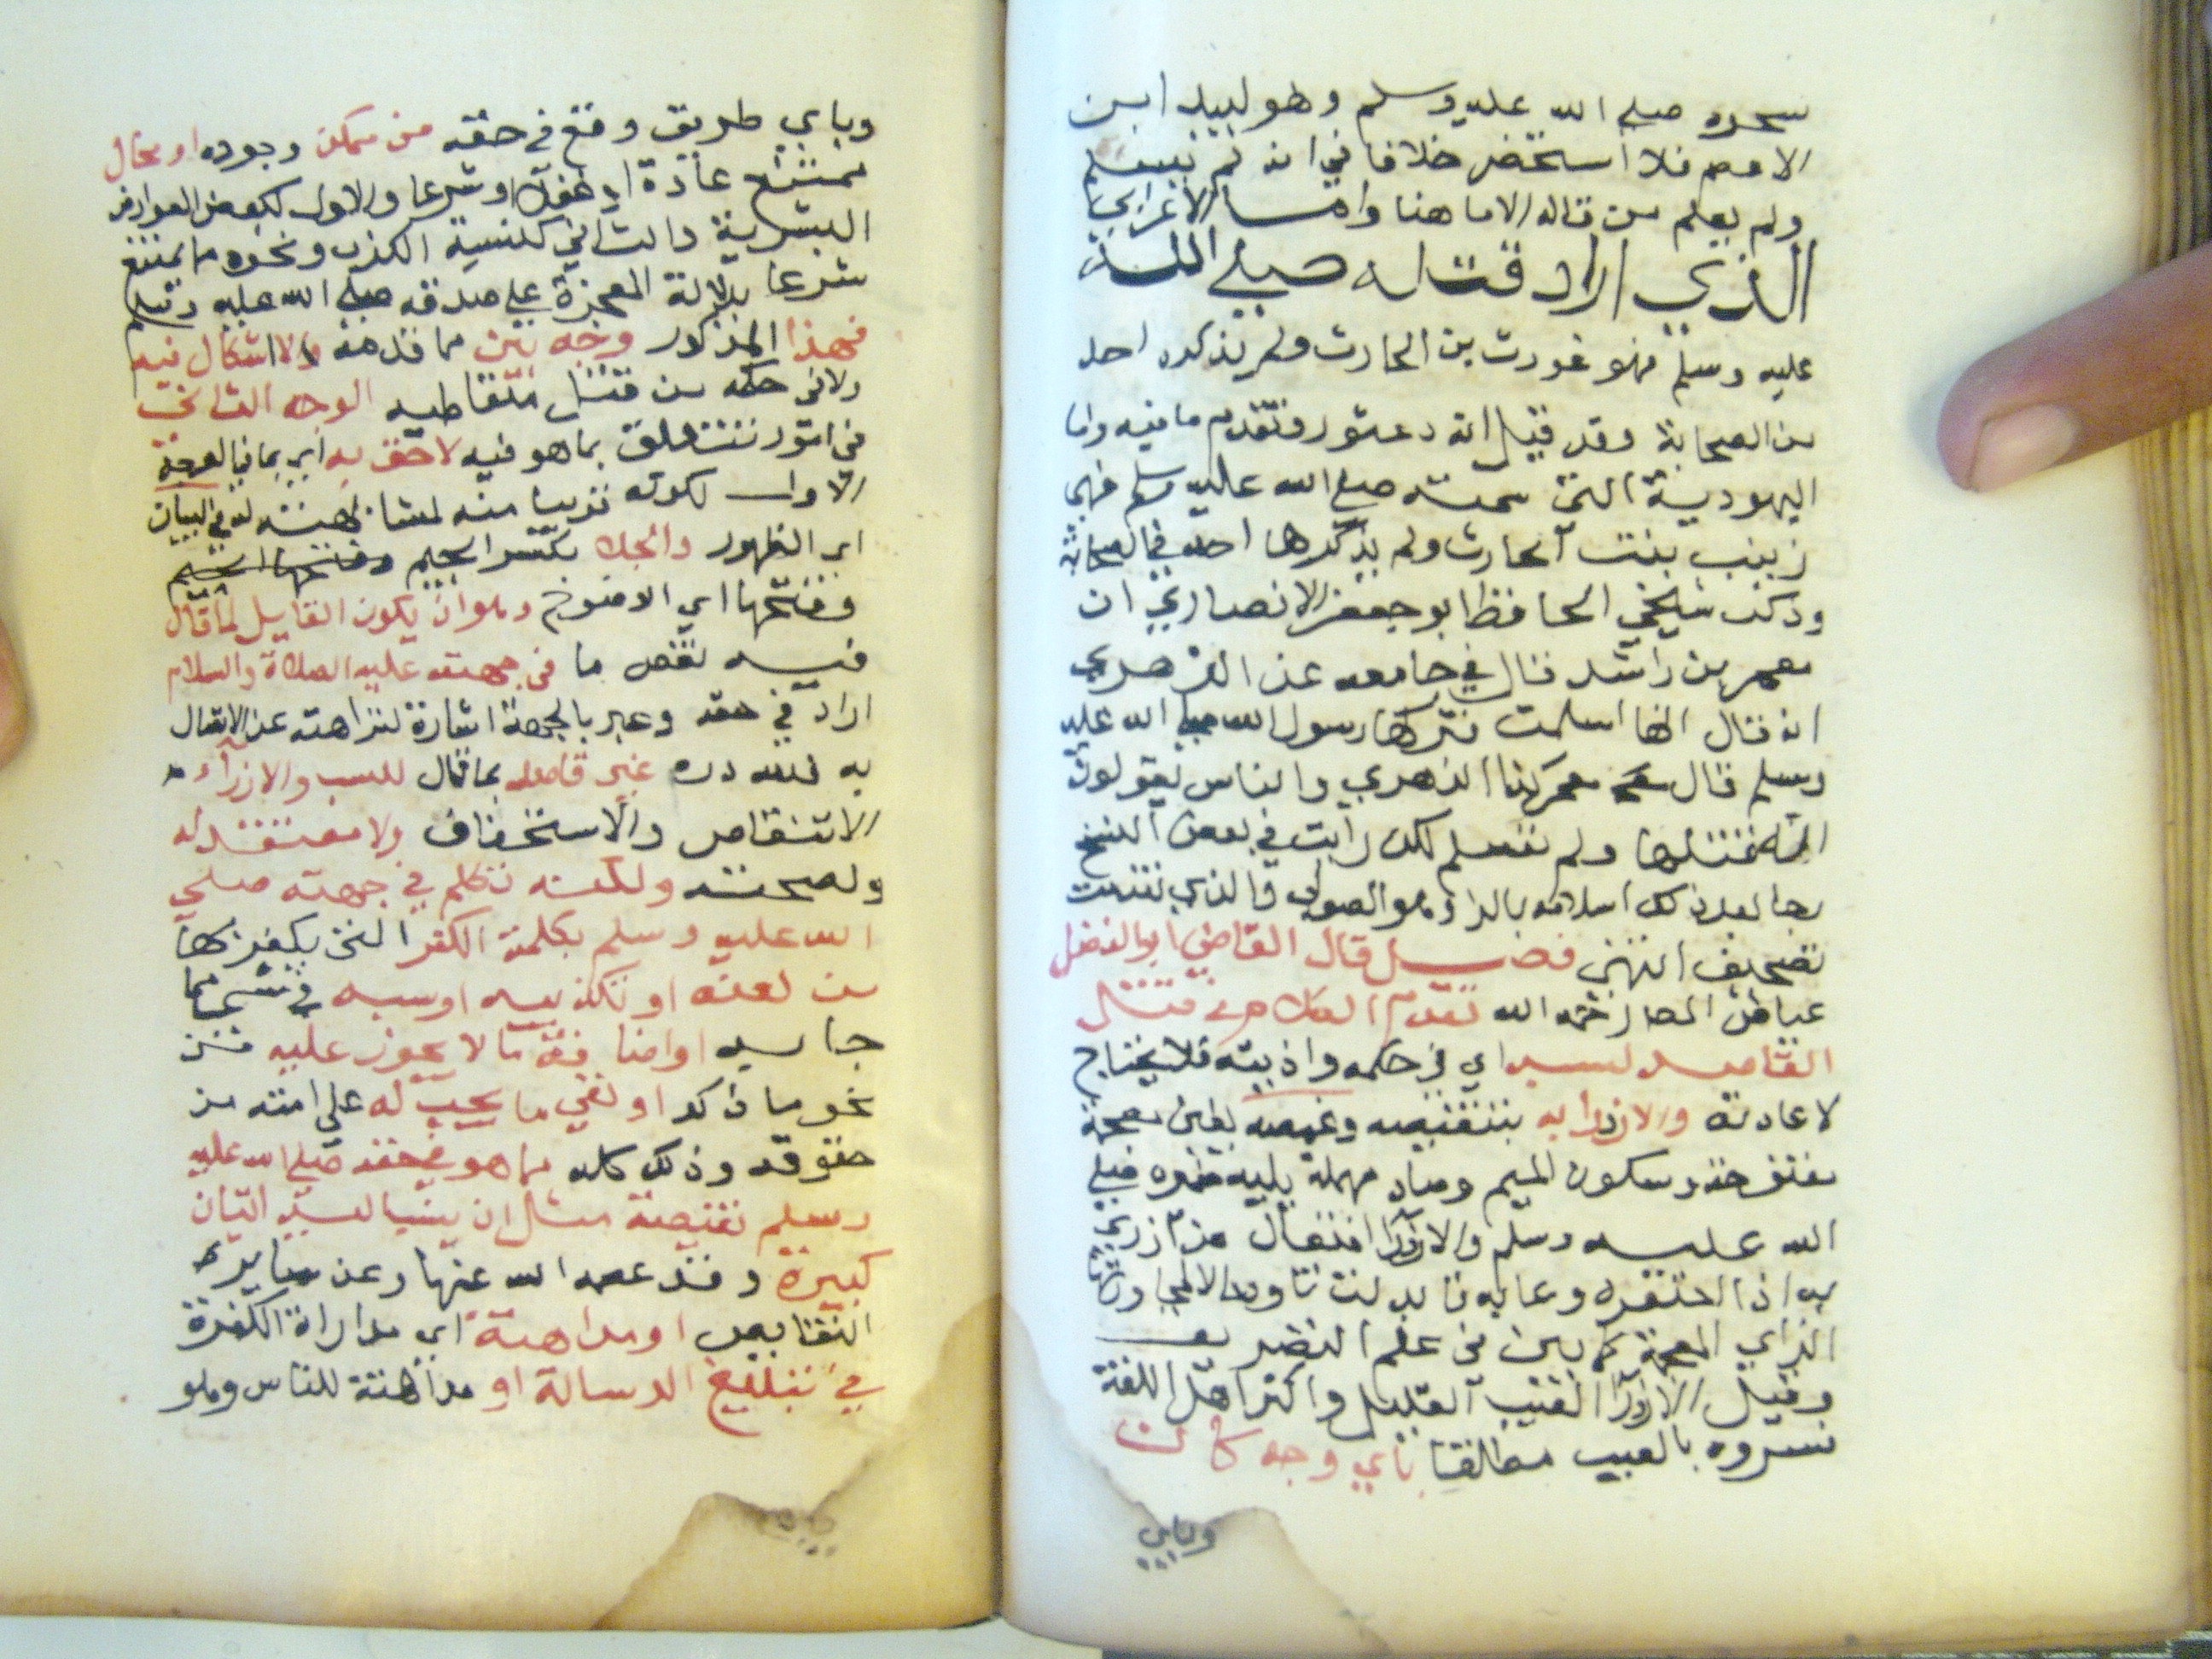 سحره صلى الله عليه وسلم وهو لبيد ابن
الاعصم فلا استحضر خلافا في انه لم يسلم
ولم يعلم من قاله الا ما هنا واما الاعرابي
الذي اراد قتله صلى الله
عليه وسلم فهو غورث بن الحارث ولم يذكره احد
من الصحابة وقد قيل انه دعثور وتقدم ما فيه واما
اليهودية التي سمته صلى الله عليه وسلم فهي
زينب بنت الحارث ولم يذكرها احد في الصحابة
وذكر شيخي الحافظ ابو جعفر الانصاري ان
معمر بن راشد قال في جامعه عن الزهري
انه قال انها اسلمت فتركها رسول الله صلى الله عليه
وسلم قال معمر كذا الزهري والناس يقولون
انه قتلها ولم تسلم لكن رايت في بعض النسخ
بعد ذلك اسلامه بالدا وهو الصواب فالذي
تصحيف انتهى فصل قال القاضي ابو الفضل
عياض المص رحمه الله تقدم الكلام في قتل
القاصد لسبه اي في حكمه واذيته فلا يحتاج
لاعادته والازرا به بتنقيصه وغمصه بغين معجمة
مفتوحة وسكون الميم وصاد مهملة يليه ضميره صلى
الله عليه وسلم والازرا افتعال من ازرى
به اذا احتقره وعابه فابدلت تاوه دالا لمجاورتها
الزاي المعجمة كما بين في علم التصريف
وقيل الازرا العيب القليل واكثر اهل اللغة
فسروه بالعيب مطلقا باي وجه كان
وباي
وباي طريق وقع في حقه من ممكن وجوده او محال
ممتنع عادة او عقلا او شرعا والاول كبعض العوارض
البشرية والثاني كنسبة الكذب ونحوه مما يمتنع
شرعا بدلالة المعجزة على صدقه صلى الله عليه وسلم
فهذا المذكور وجه بين مما قدمه لا اشكال فيه
ولا في حكمه من قتل متعاطيه الوجه الثاني
في امور تتعلق بما هو فيه لاحق به اي بما في الوجه
الاول لكونه قريبا منه لمشابهته له في البيان
اي الظهور والجلا بكسر الجيم وفتحها الجيم
وفتحها اي الوضوح وهو ان يكون القايل لما قال
فيه نقص ما في جهته عليه الصلاة والسلام
اراد في حقه وعبر بالجهة اشارة لنزاهته عن الاتصال
به فلله دره غير قاصد بما قال للسب والازراء
الانتقاص والاستخفاف ولا معتقد له
ولصحته ولكنه تكلم في جهته صلى
الله عليه وسلم بكلمة الكفر التي يكفر بها
من لعنه او تكذيبه او سبه في شي مما
جا به او اضافة ما لا يجوز عليه من
نحو ما ذكر او نفي ما يجب له على امته من
حقوقه وذلك كله مما هو في حقه صلى الله عليه
وسلم نقيصة مثل ان ينسب اليه اتيان
كبيرة وقد عصمه الله عنها وعن ساير
النقايص او مداهنة اي مداراة الكفرة
في تبليغ الرسالة او مداهنة للناس وهو